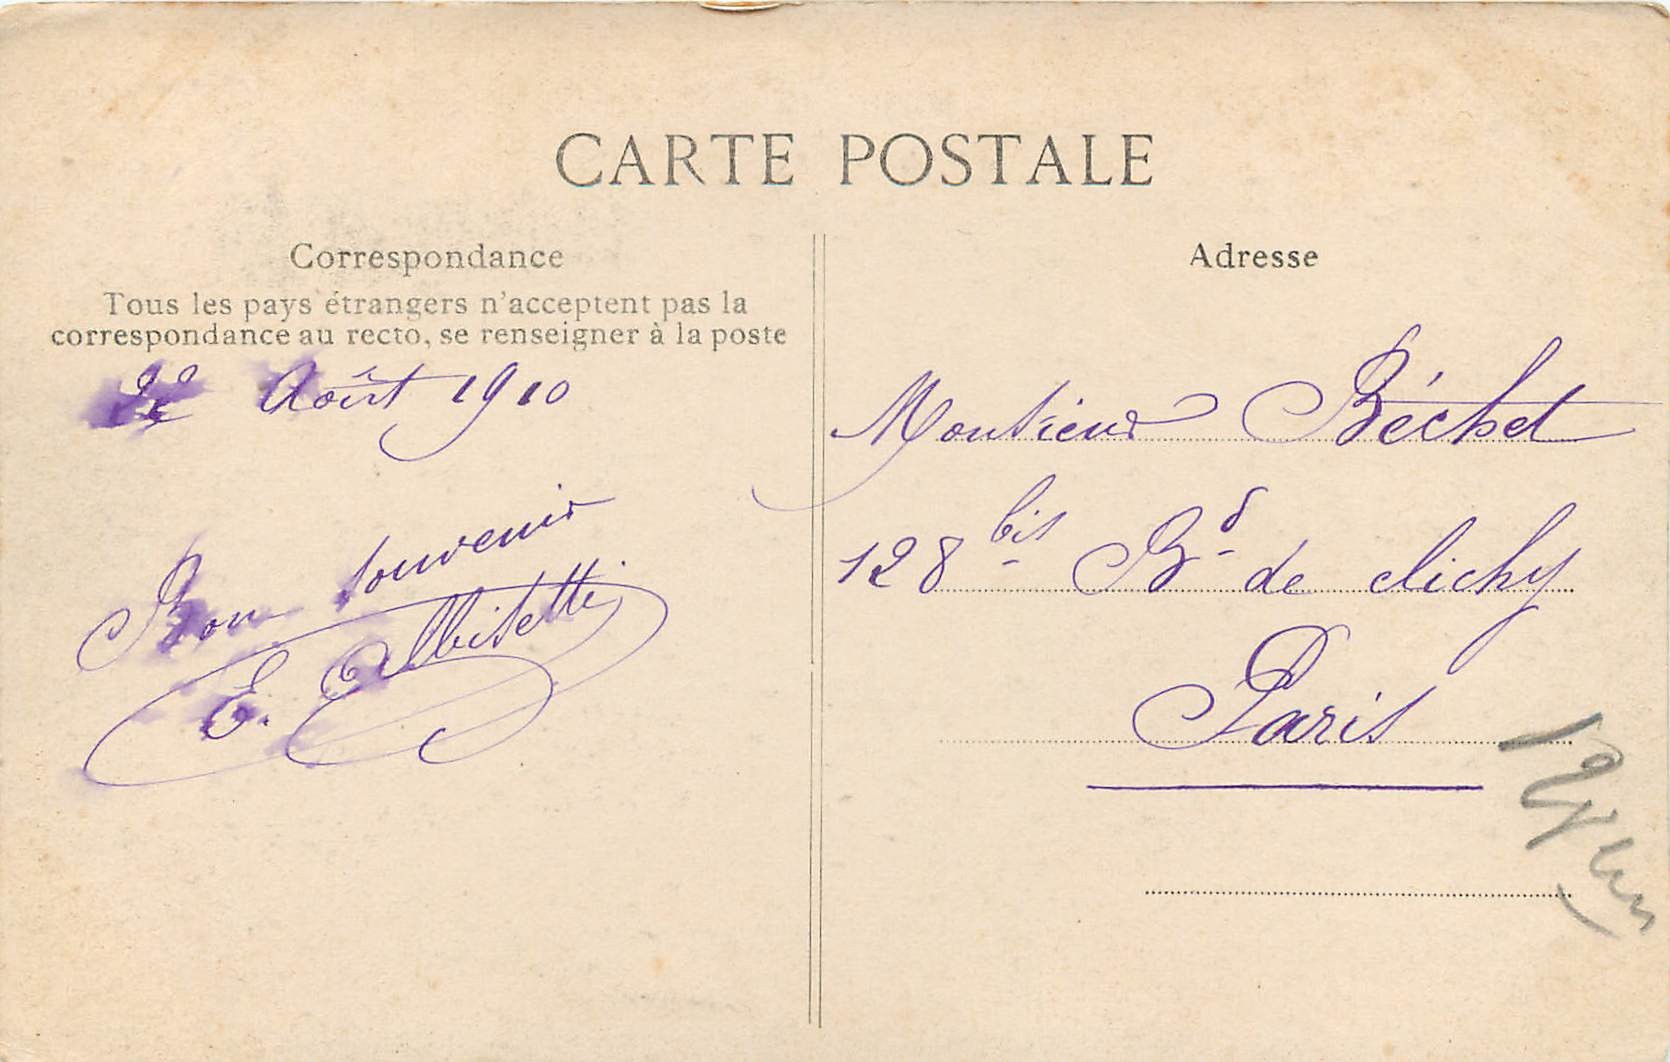 CARTE POSTALE
Correspondance
Tous les pays étrangers n'acceptent pas la
correspondance au recto, se renseigner à la poste
22 Août 1910
Bon souvenir
E. Albisetti
Adresse
Monsieur Béchet
128 bis Bd de clichy
Paris